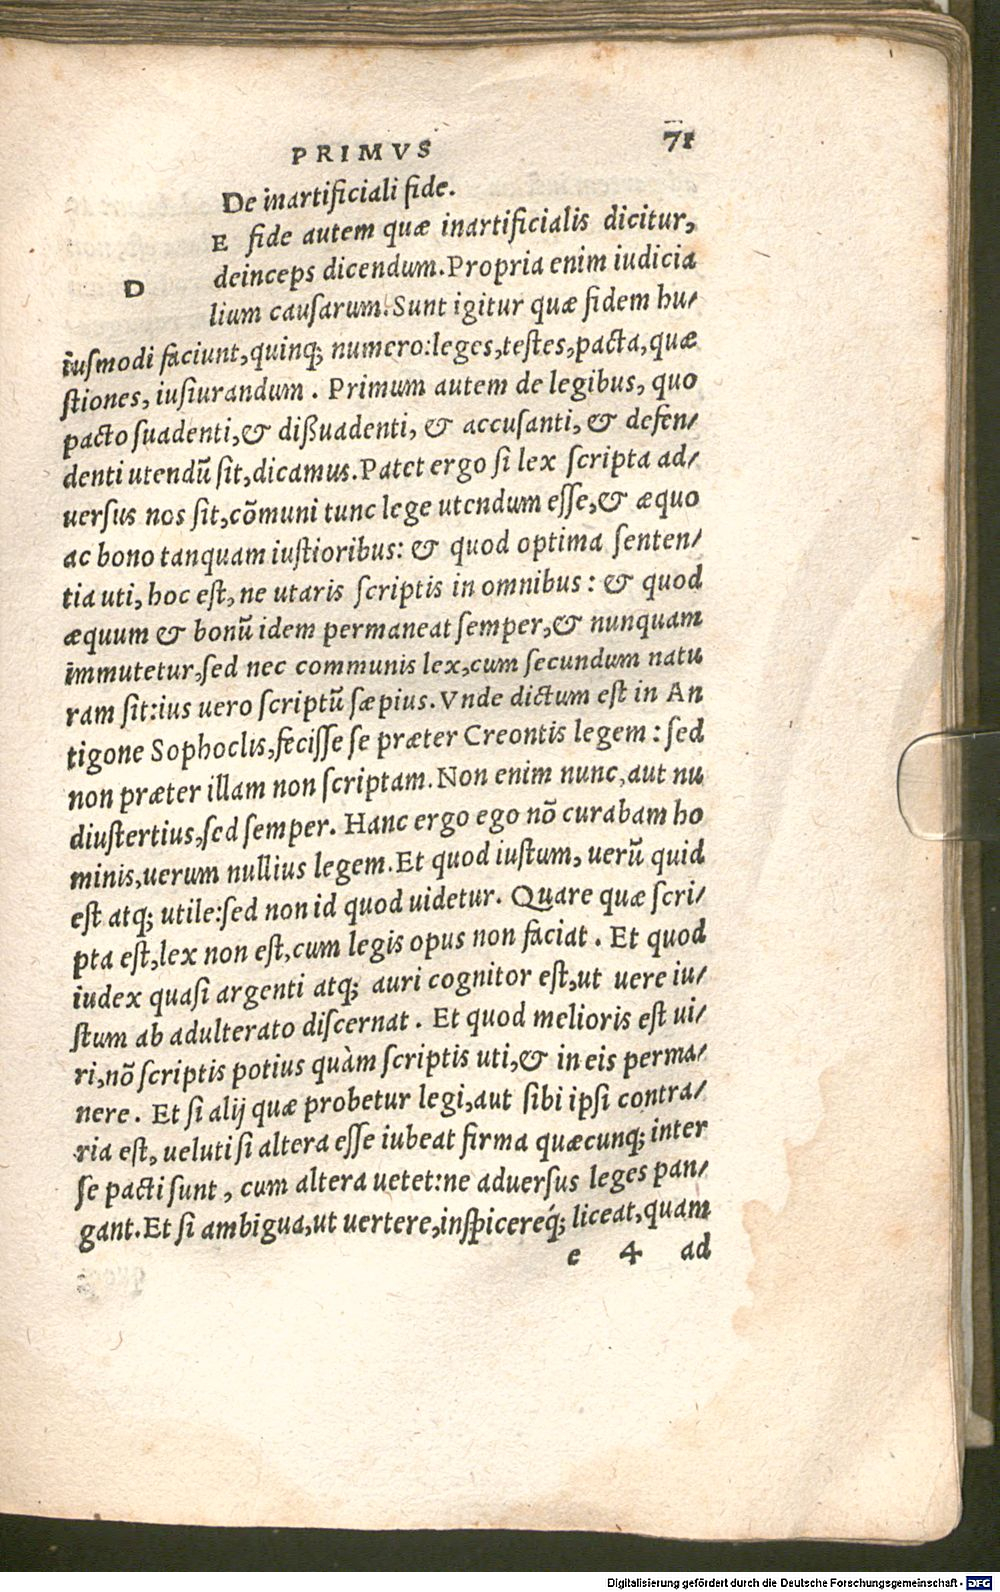 PRIMVS 71
De inartificiali fide.
DE fide autem quæ inartificialis dicitur,
deinceps dicendum. Propria enim iudicia
lium causarum. Sunt igitur quæ fidem hu/
iusmodi faciunt, quinq; numero: leges, testes, pacta, quæ
stiones, iusiurandum. Primum autem de legibus, quo
pacto suadenti, & dißuadenti, & accusanti, & defen/
denti utendũ sit, dicamus. Patet ergo si lex scripta ad/
uersus nos sit, cõmuni tunc lege utendum esse, & æquo
ac bono tanquam iustioribus: & quod optima senten/
tia uti, hoc est, ne utaris scriptis in omnibus: & quod
æquum & bonũ idem permaneat semper, & nunquam
immutetur, sed nec communis lex, cum secundum natu
ram sit: ius uero scriptũ sæpius. Vnde dictum est in An
tigone Sophoclis, fecisse se præter Creontis legem: sed
non præter illam non scriptam. Non enim nunc, aut nu
diustertius, sed semper. Hanc ergo ego nõ curabam ho
minis, uerum nullius legem. Et quod iustum, uerũ quid
est atq; utile: sed non id quod uidetur. Quare quæ scri/
pta est, lex non est, cum legis opus non faciat. Et quod
iudex quasi argenti atq; auri cognitor est, ut uere iu/
stum ab adulterato discernat. Et quod melioris est ui/
ri, nõ scriptis potius quàm scriptis uti, & in eis perma/
nere. Et si alij quæ probetur legi, aut sibi ipsi contra/
ria est, ueluti si altera esse iubeat firma quæcunq; inter
se pacti sunt, cum altera uetet: ne aduersus leges pan/
gant. Et si ambigua, ut uertere, inspicereq́; liceat, quam
e 4 ad
Digitalisierung gefördert durch die Deutsche Forschungsgemeinschaft - DFG